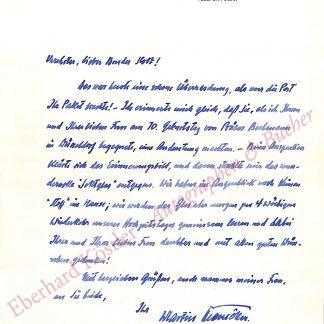 Verehrter, lieber Bruder Kloss!
Das war heute eine schöne Überraschung, als uns die Post
Ihr Paket brachte! - Ich erinnerte mich gleich, daß Sie, als ich Ihnen
und Ihrer lieben Frau am 70. Geburtstag von Präses Beckmann
in Düsseldorf begegnet, eine Andeutung machten. - Beim Auspacken
klärte sich das Erinnerungsbild, und daraus strahlte mir das
entgegen. Wir haben im Augenblick noch keinen
im Hause; wir werden das
Wiederkehr unseres Hochzeitstages gemeinsam leeren und dabei
Ihrer und Ihrer lieben Frau dankbar und mit allen guten Wün-
schen gedenken!
Mit herzlichen Grüßen, auch namens meiner Frau,
an Sie beide,
Ihr Martin Niemöller
Eberhard Köstler Autographen & Bücher